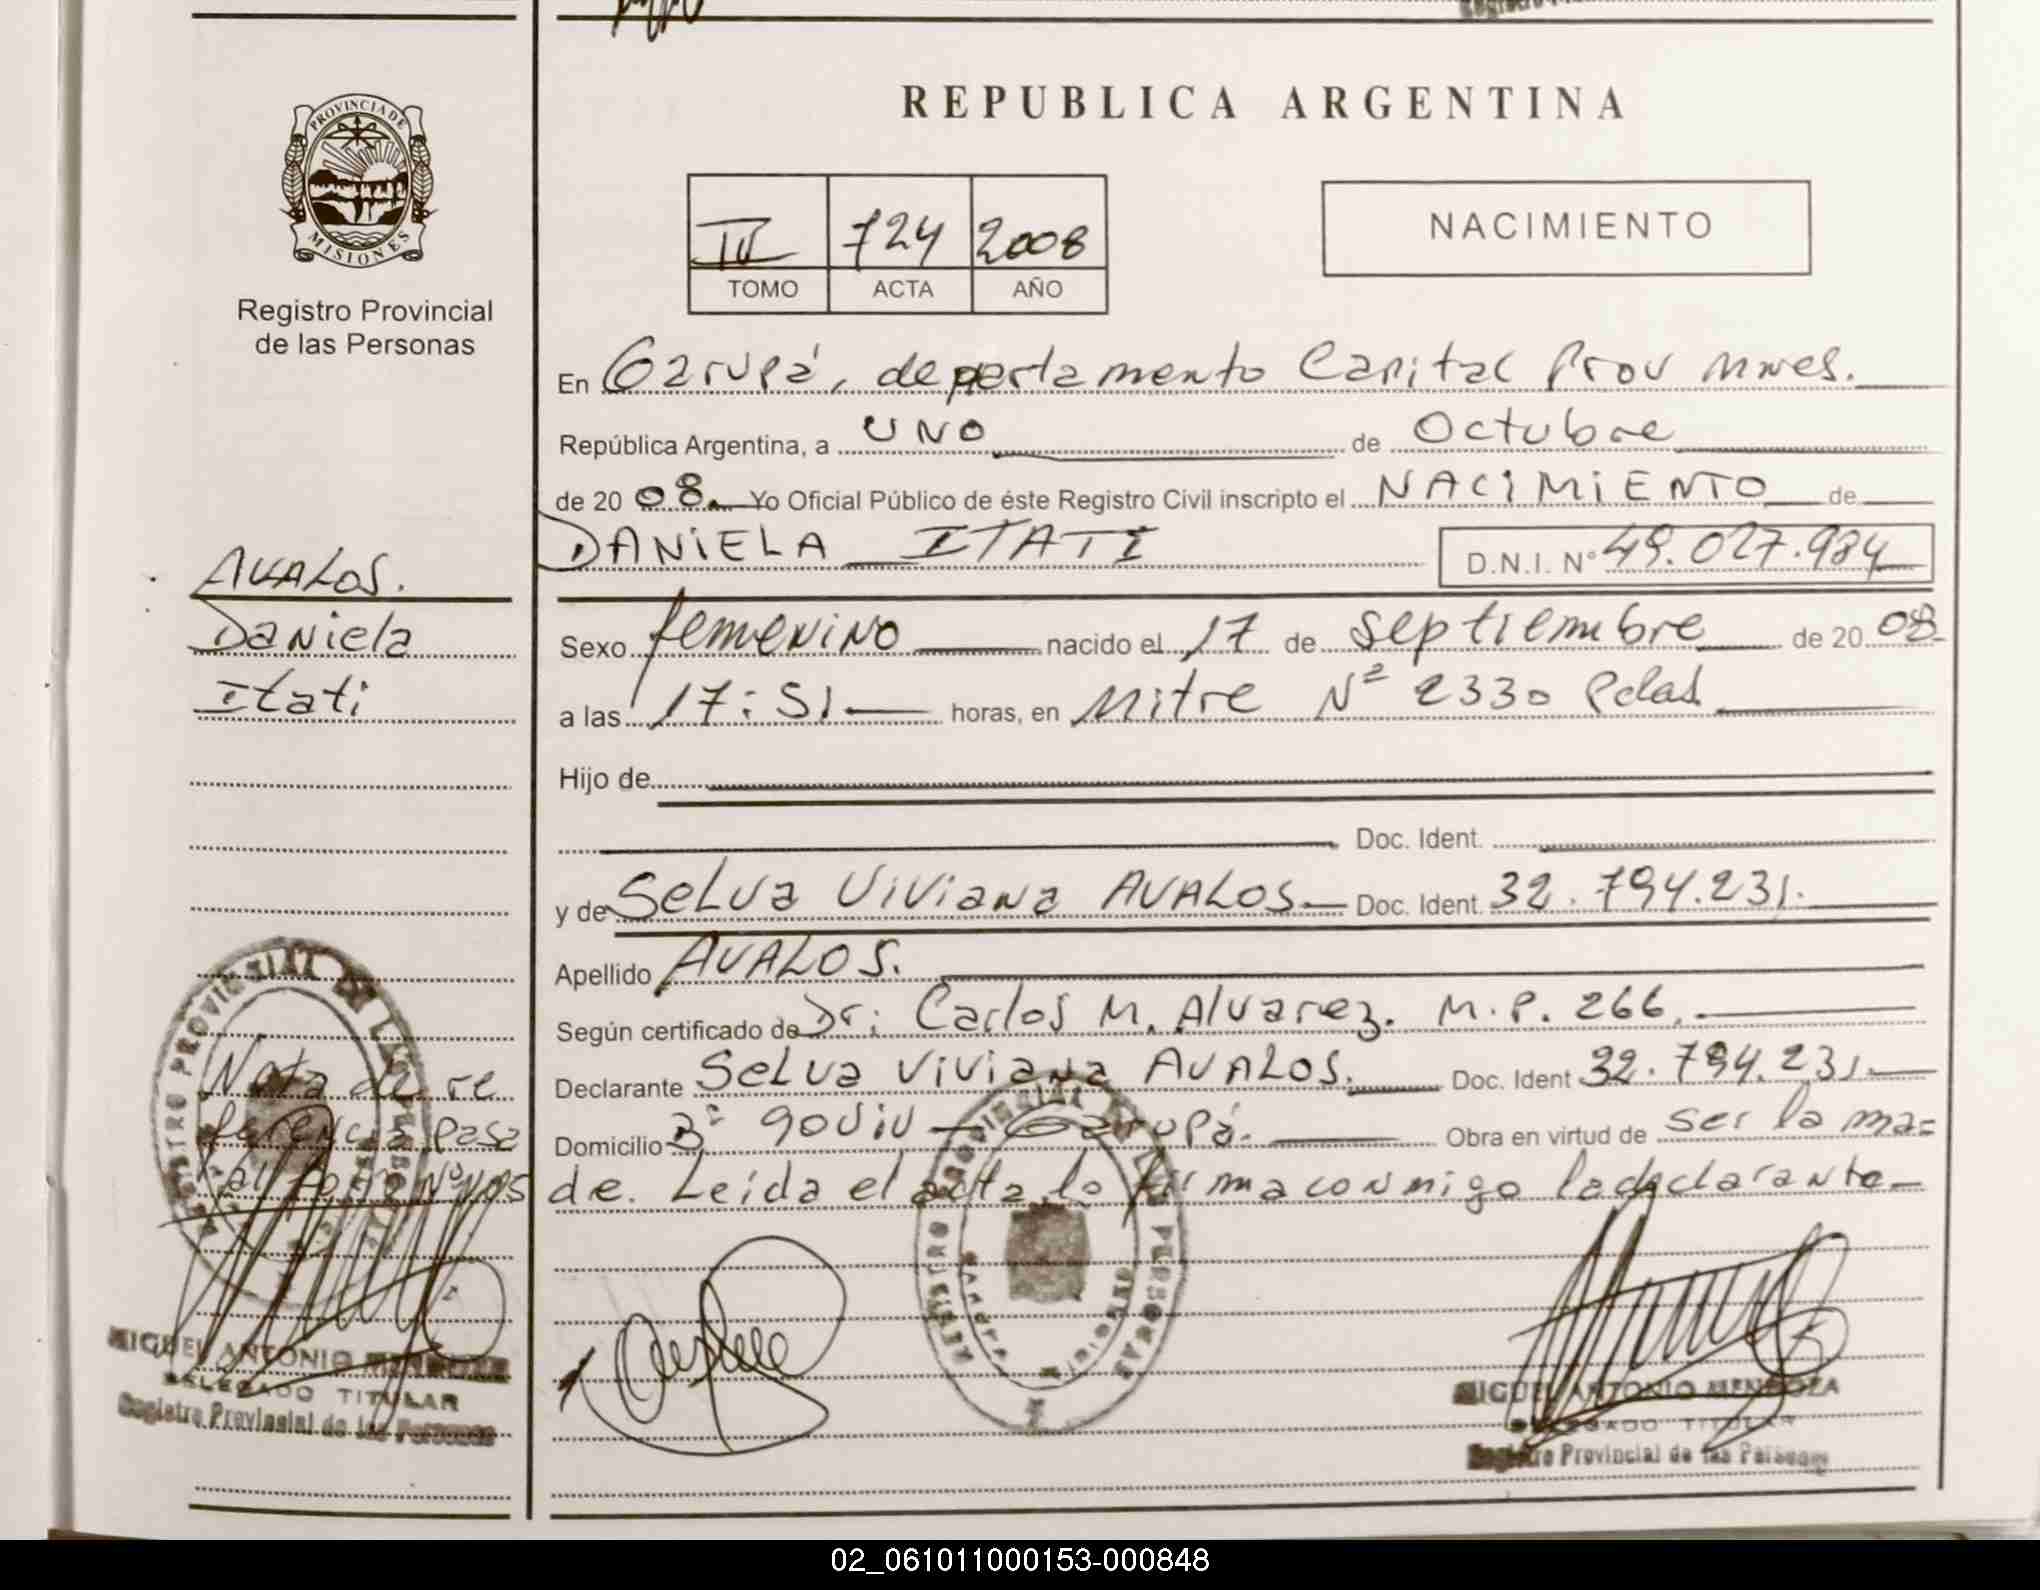 PROVINCIA DE
MISIONES
Registro Provincial
de las Personas
REPUBLICA ARGENTINA
IV 724 2008
TOMO ACTA AÑO
NACIMIENTO
En Garupá, departamento Capital Prov Mnes.
República Argentina, a UNO de Octubre
de 20 08. Yo Oficial Público de éste Registro Civil inscripto el NACIMIENTO de
DANIELA ITATI D.N.I. Nº 49.027.984
Sexo femenino nacido el 17 de septiembre de 20 08
a las 17:51 horas, en Mitre Nº 2330 Pdas
Hijo de
Doc. Ident.
y de Selva Viviana AVALOS Doc. Ident. 32.794.231.
Apellido AVALOS.
Según certificado de Dr: Carlos M. Alvarez. M.P. 266.
Declarante Selva Viviana AVALOS. Doc. Ident 32.794.231.
Domicilio Garupá. Obra en virtud de ser la ma=
de. Leída el acta lo firma conmigo la declarante
AVALOS.
Daniela
Itati
Nota de re
ferencia pasa
MIGUEL ANTONIO MENDOZA
DELEGADO TITULAR
Registro Provincial de las Personas
MIGUEL ANTONIO MENDOZA
DELEGADO TITULAR
Registro Provincial de las Personas
02_061011000153-000848